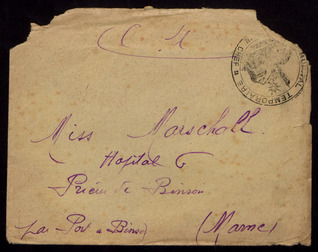 TEMPORAIRE
CHEF
Miss Marschall.
Hopital
Prieuré de Binson
par Port à Binson
(Marne)